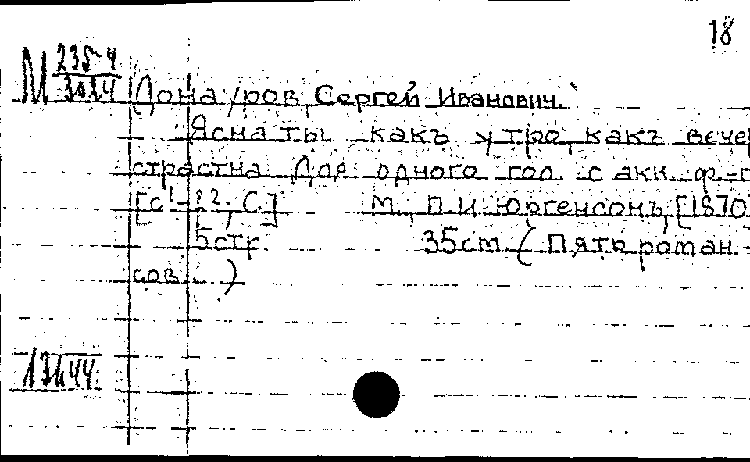 18
М 235-4
Донауров, Сергей Иванович.
Ясна ты какъ утро, какъ вече
страстна Для одного гол. с акк. ф-п
[с¹-g²; С.] М., П.И. Юргенсонъ, [1870]
5стр. 35см. (Пять роман-
сов...)